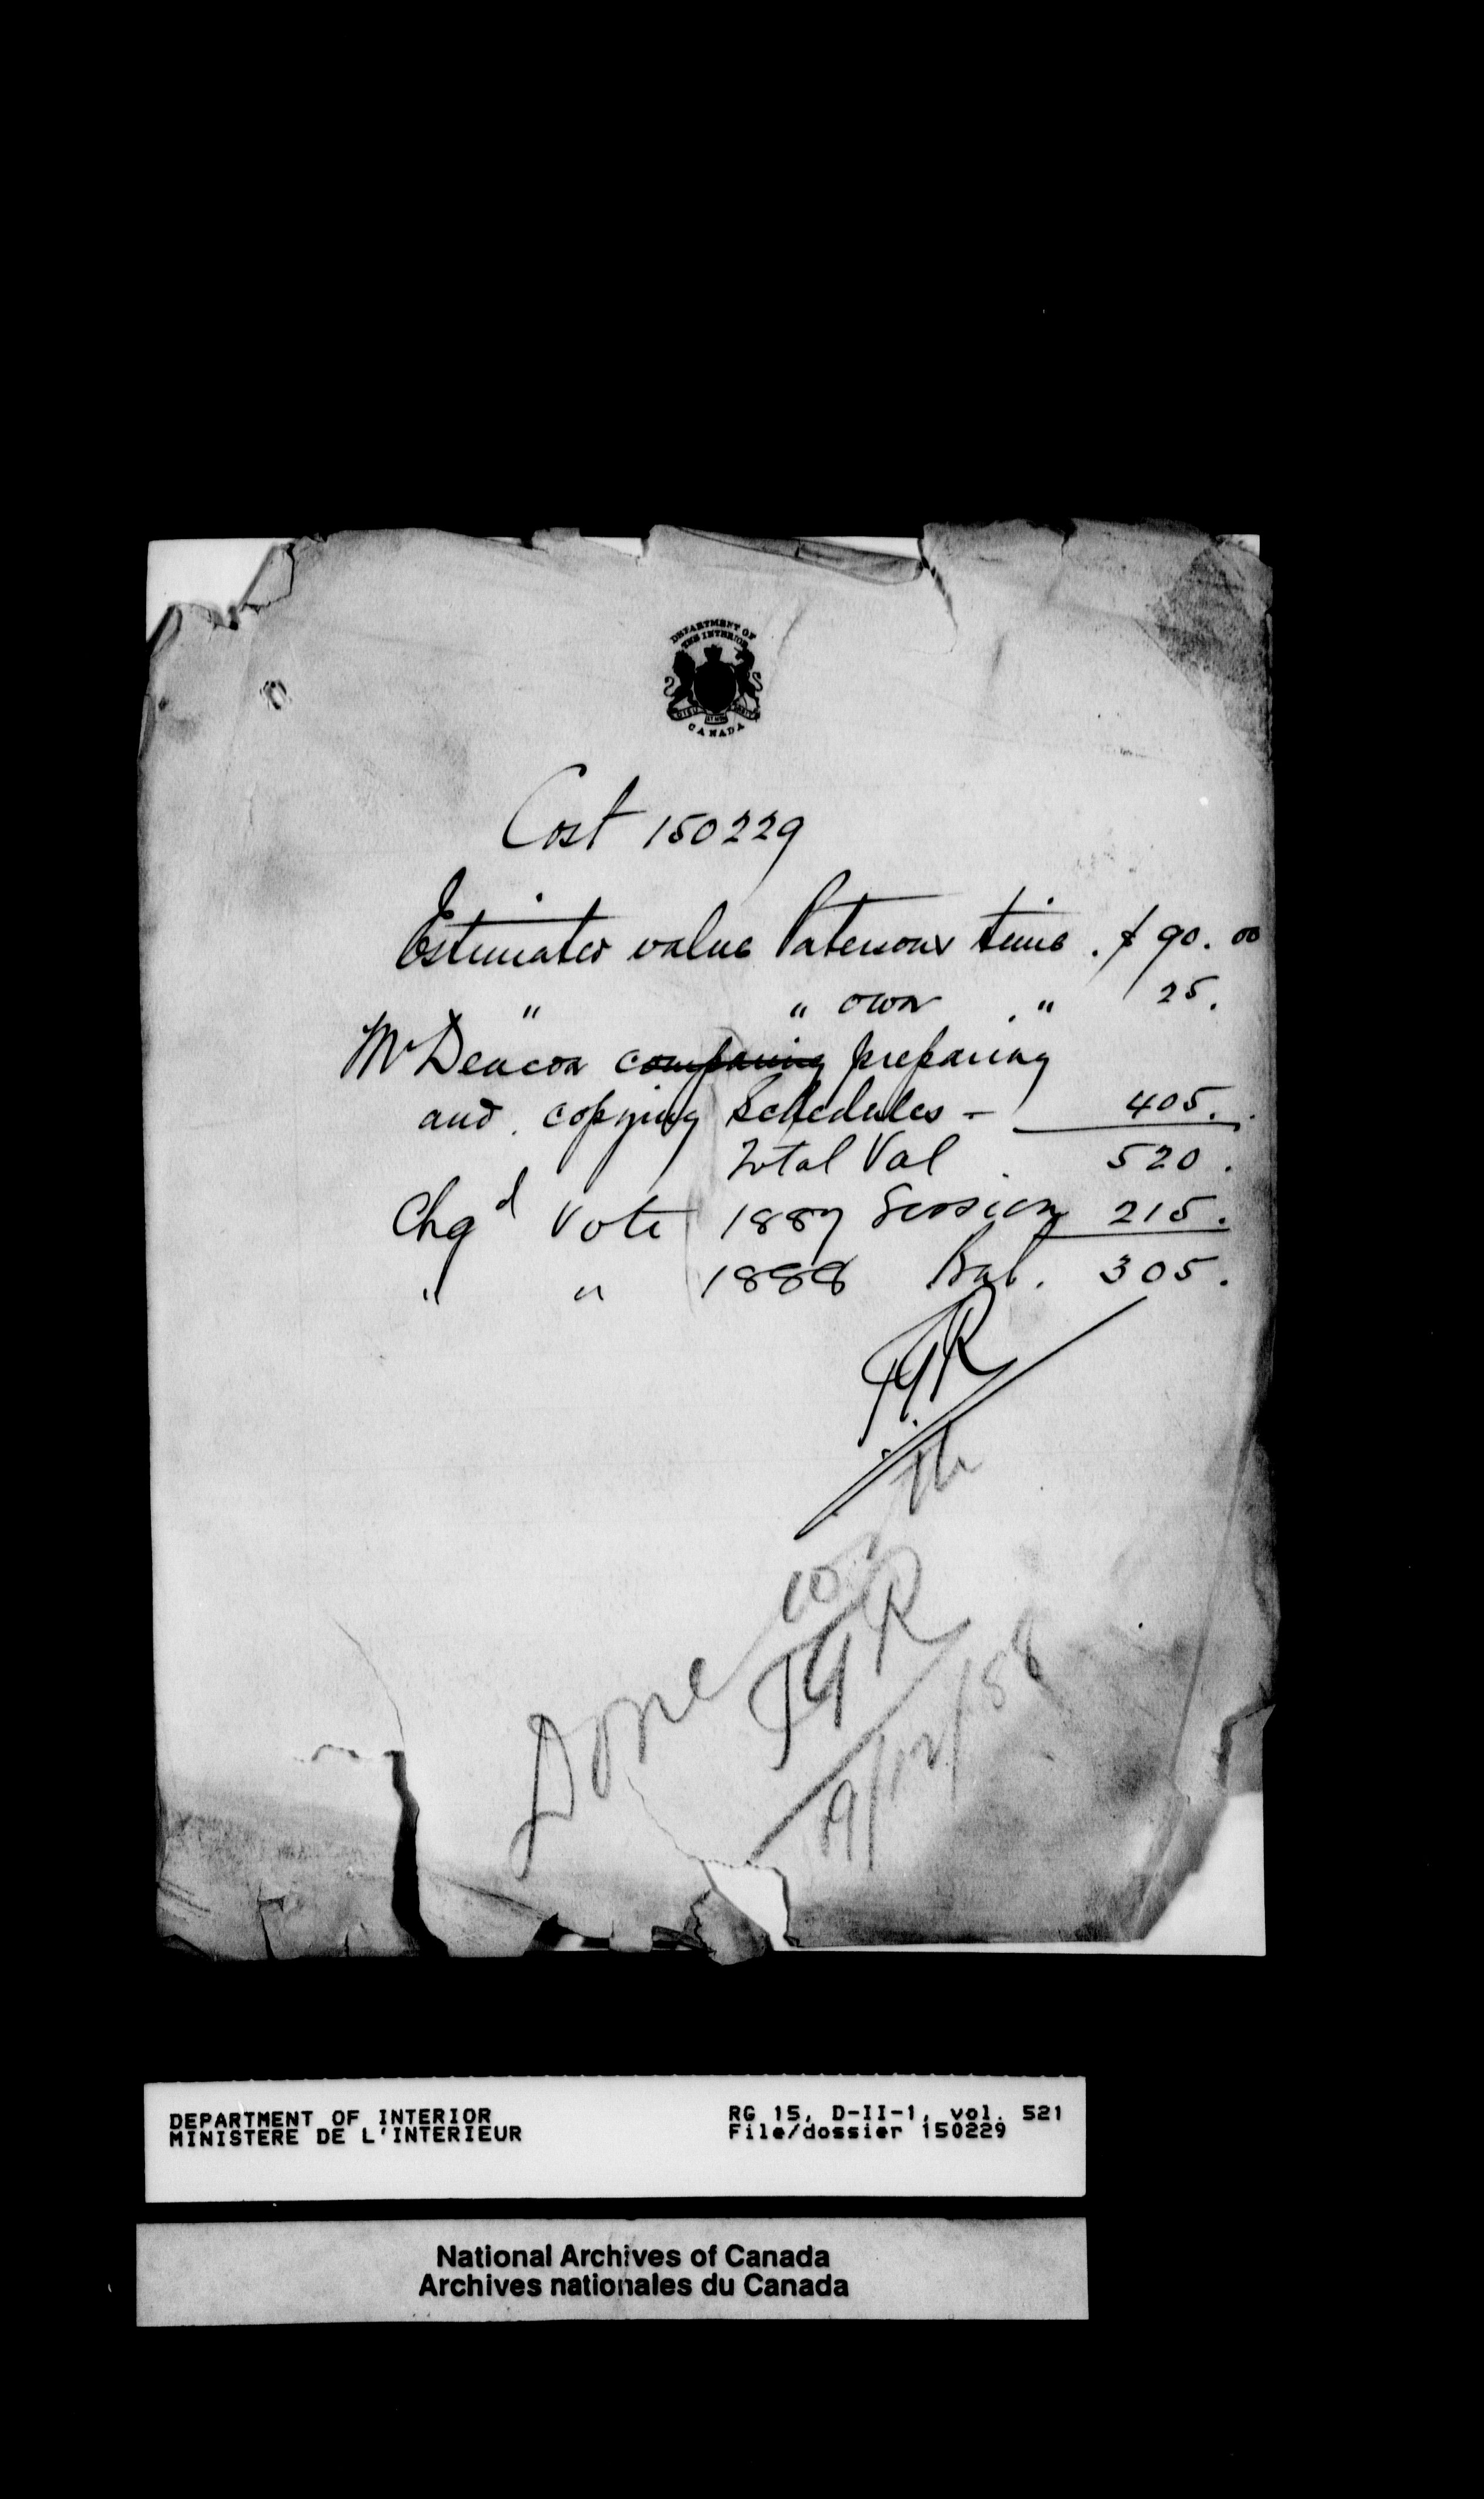 DEPARTMENT OF
THE INTERIOR
CANADA
Cost 150229
Estimated value Patersons time . $ 90.00
" " own . " 25.
Mr Deacon comparing preparing
and copying Schedules - 405.
Total Val 520.
Chgd Vote 1887 Session 215.
" " 1888 Bal. 305.
Done
19/12/88
DEPARTMENT OF INTERIOR
MINISTERE DE L'INTERIEUR
RG 15, D-II-1, vol. 521
File/dossier 150229
National Archives of Canada
Archives nationales du Canada